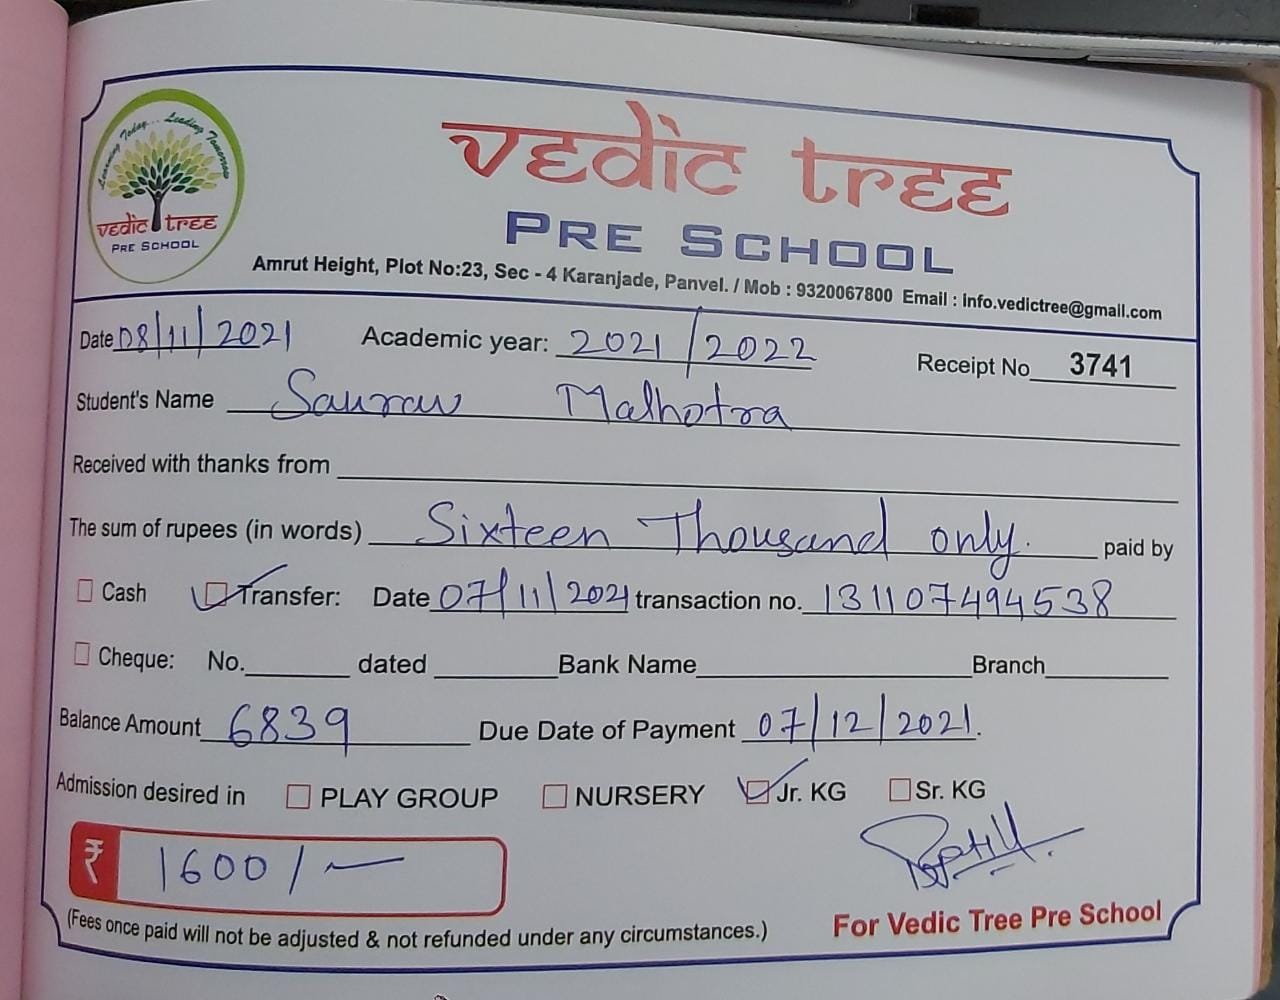 Learning Today... Leading Tomorrow
vedic tree
PRE SCHOOL
vedic tree
PRE SCHOOL
Amrut Height, Plot No:23, Sec - 4 Karanjade, Panvel. / Mob : 9320067800 Email : info.vedictree@gmail.com
Date 08/11/2021 Academic year: 2021/2022 Receipt No 3741
Student's Name Saurav Malhotra
Received with thanks from
The sum of rupees (in words) Sixteen Thousand only. paid by
Cash Transfer: Date 07/11/2021 transaction no. 131107494538
Cheque: No. dated Bank Name Branch
Balance Amount 6839 Due Date of Payment 07/12/2021.
Admission desired in PLAY GROUP NURSERY Jr. KG Sr. KG
₹ 1600/-
(Fees once paid will not be adjusted & not refunded under any circumstances.) For Vedic Tree Pre School